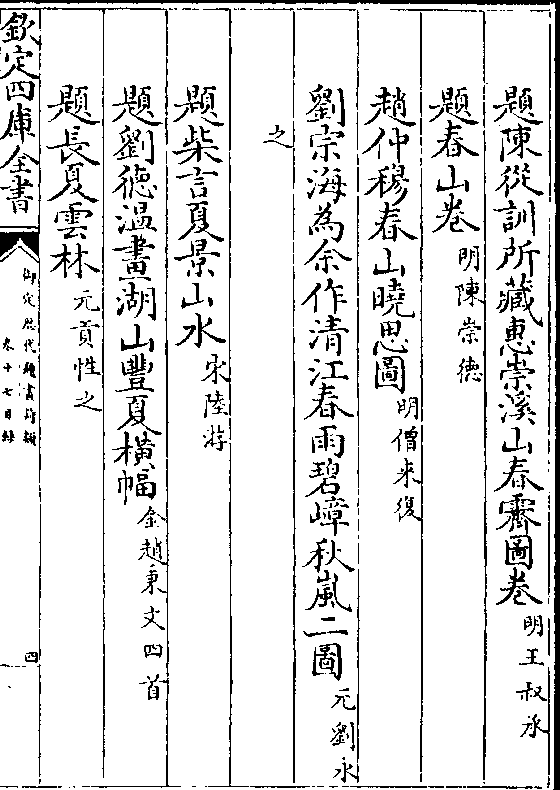 題陳從訓所藏惠崇溪山春霽圖卷 明王叔承
題春山卷 明陳崇德
趙仲穆春山曉思圖 明僧来復
劉宗海為余作清江春雨碧嶂秋嵐二圖 元劉永
之
題柴言夏景山水 宋陸游
題劉德温畫湖山豐夏横幅 金趙秉文四首
題長夏雲林 元貢性之
欽定四庫全書
御定歷代題畫詩類
卷十七目録
四